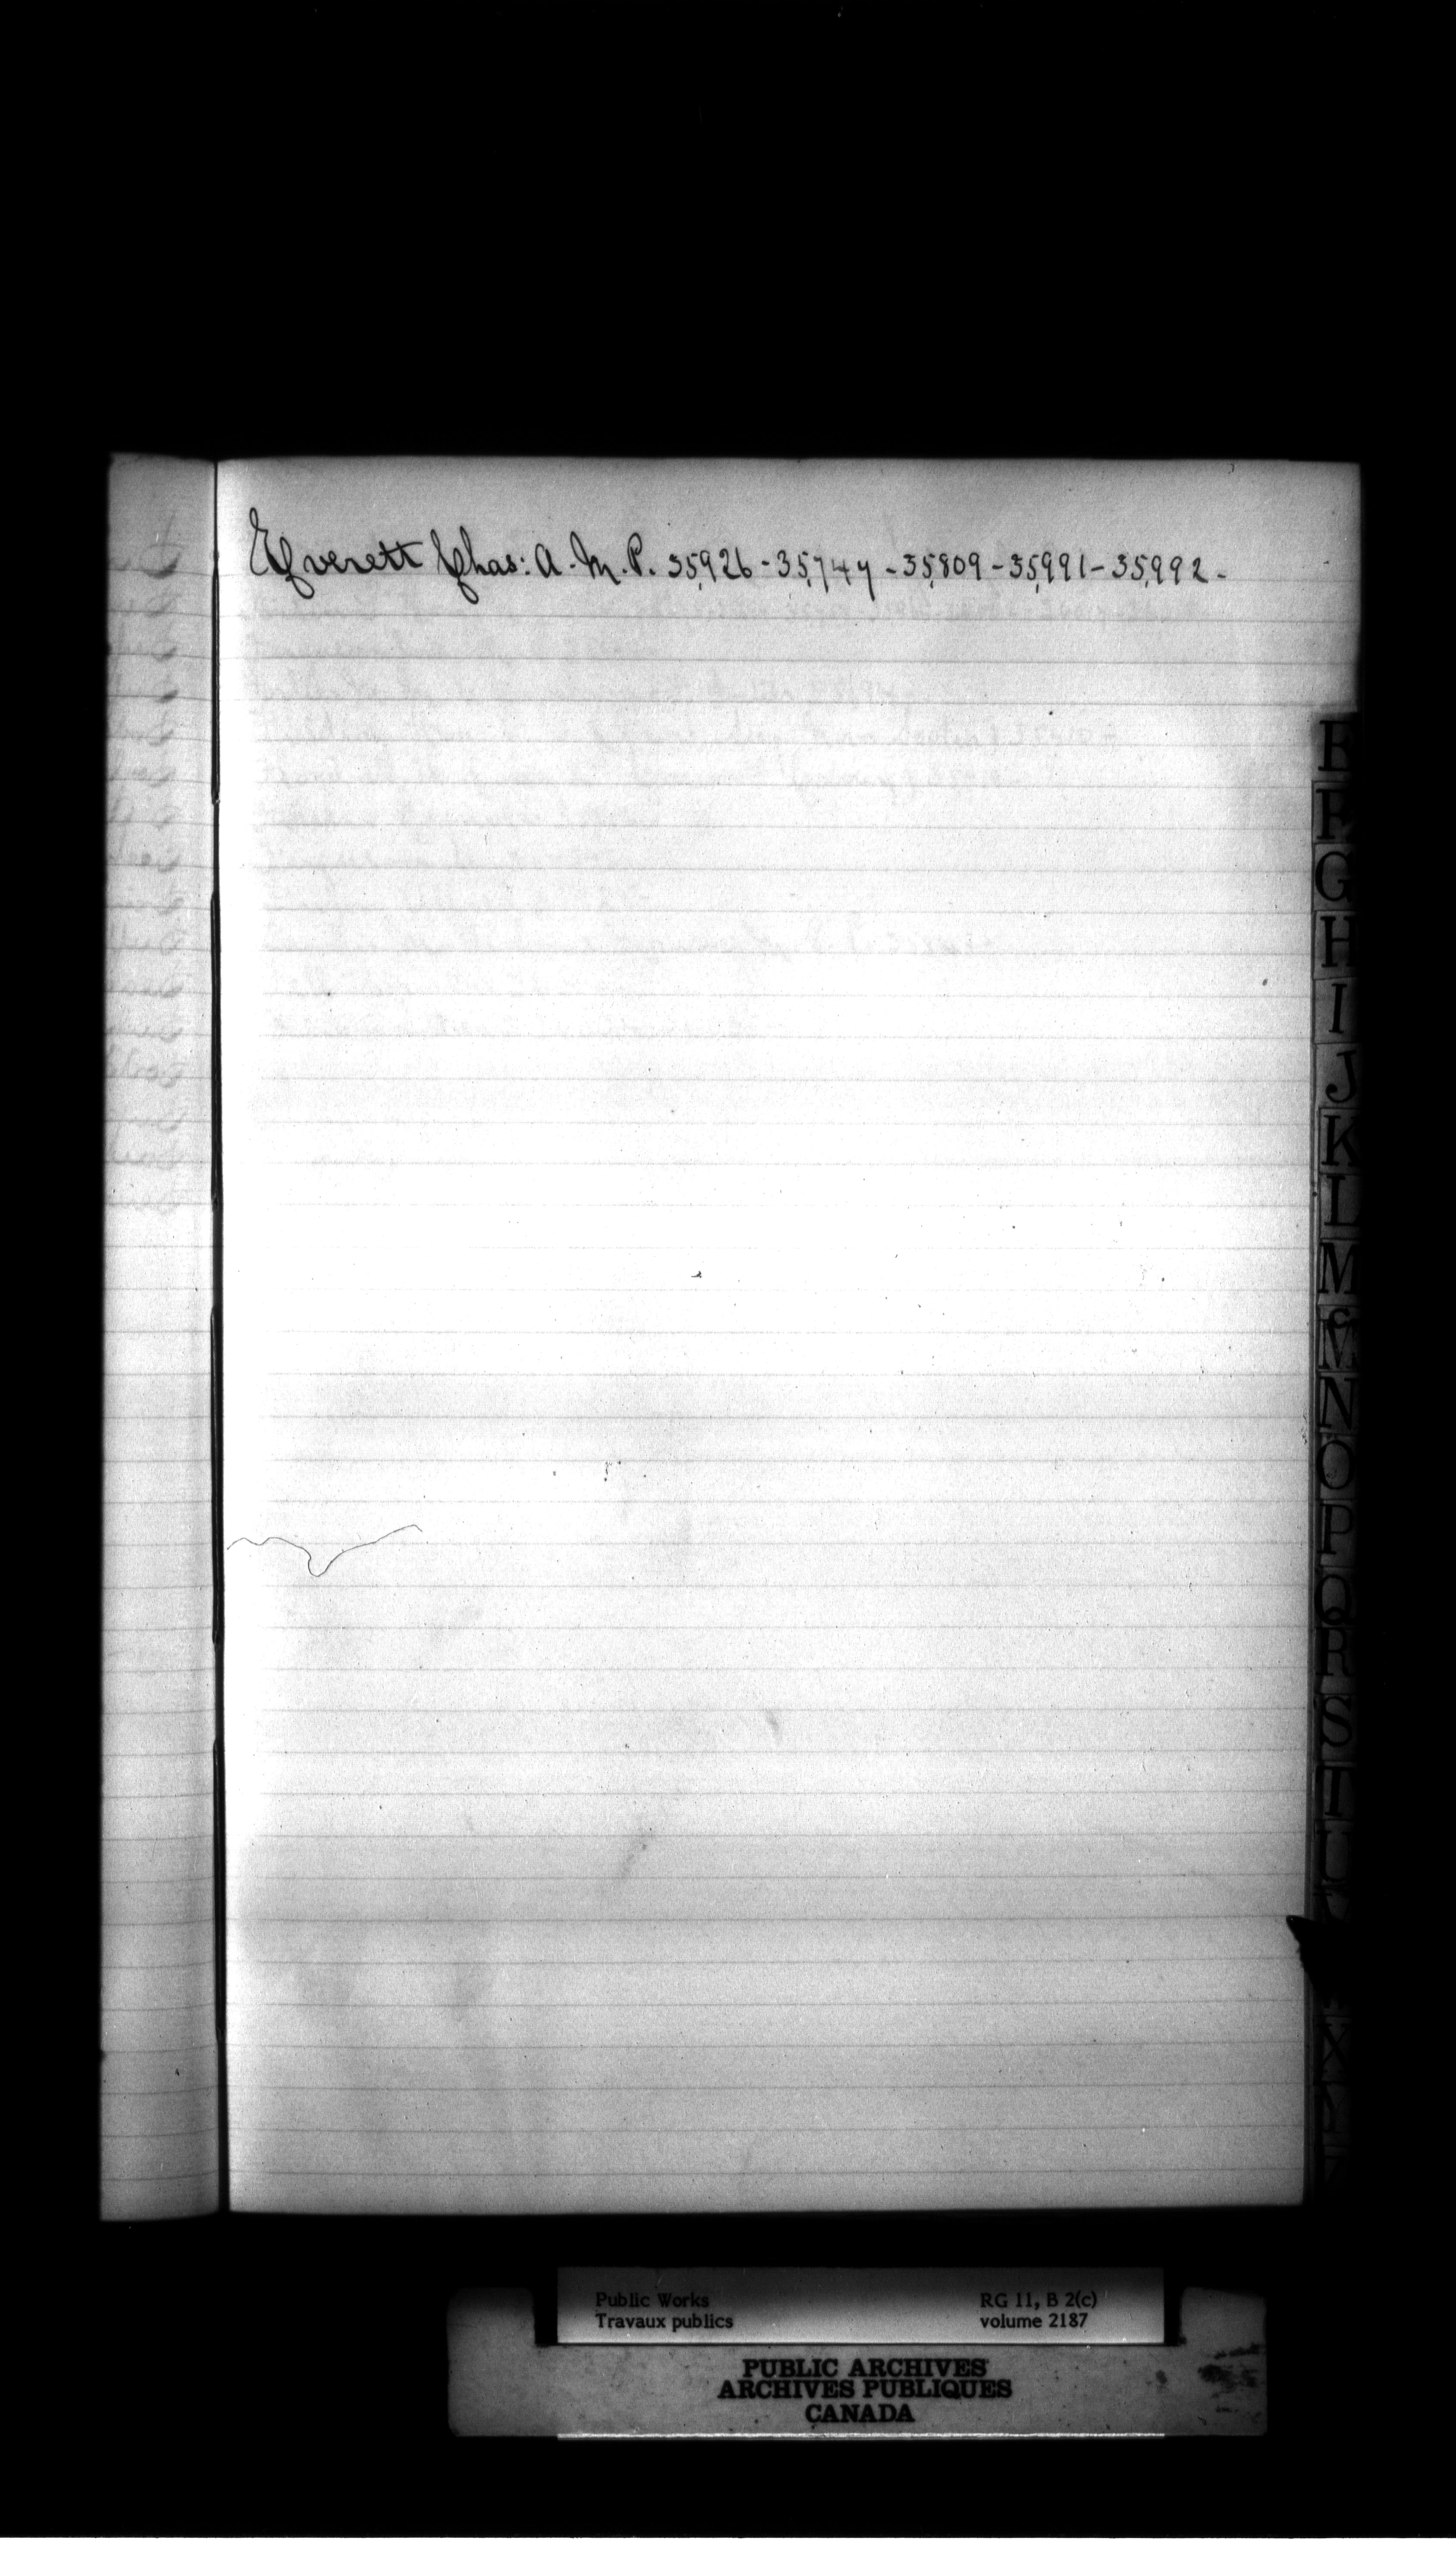 Everett Chas: A. M. P. 35,926 - 35,747 - 35,809 - 35,991 - 35,992 -
E
F
G
H
I
J
K
L
M
Mc
N
O
P
Q
R
S
T
U
X
Y
Public Works RG 11, B 2(c)
Travaux publics volume 2187
PUBLIC ARCHIVES
ARCHIVES PUBLIQUES
CANADA